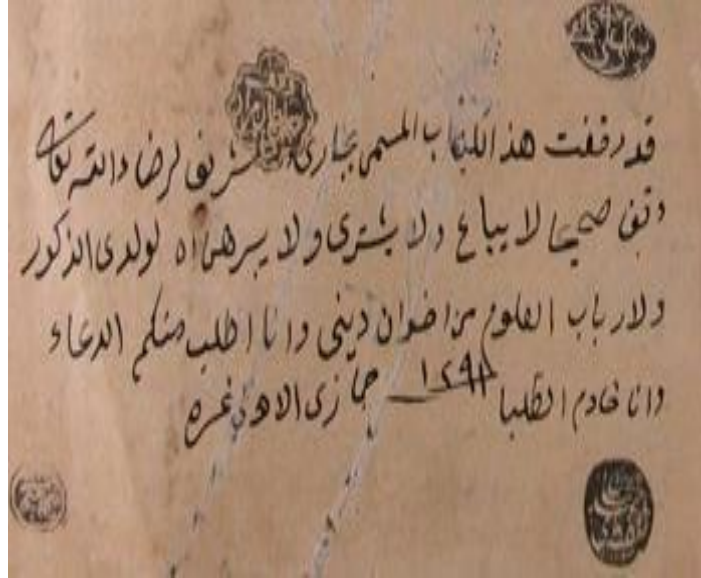 قد وقفت هذا الكتاب المسمى بخارى شريف لرضاء الله تعالى
وقف صحيحا لا يباع ولا يشترى ولا يرهن اه لولدى الذكور
ولارباب العلوم من اخوان دينى وانا اطلب منكم الدعاء
وانا خادم الطلبا ١٢٩٨ جمازى الاولى غره